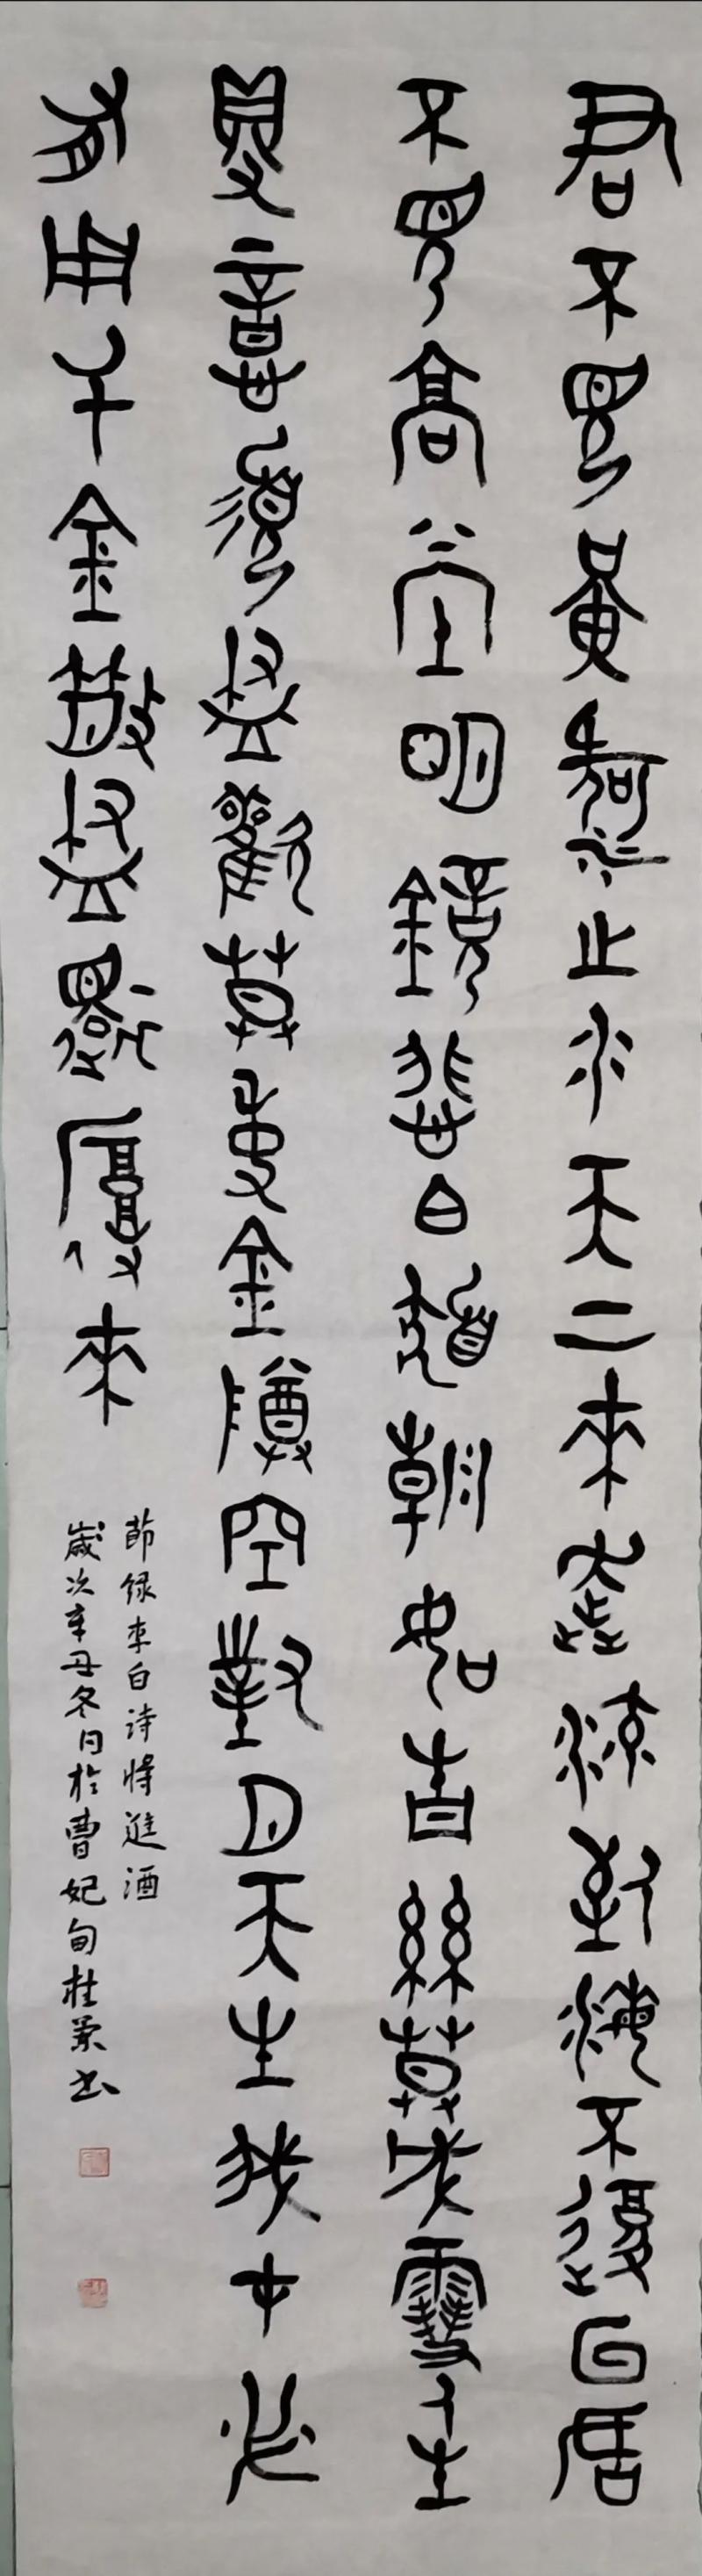 君不見黃河之水天上來奔流到海不復回君
不見高堂明鏡悲白髮朝如青絲暮成雪人生
得意須盡歡莫使金樽空對月天生我才必
有用千金散盡還復來
節録李白诗將進酒
歲次辛丑冬日於曹妃甸桂書